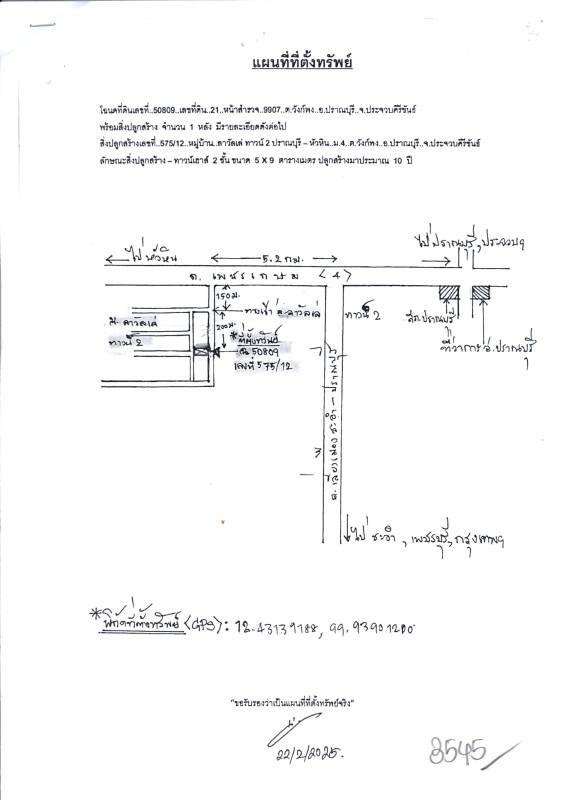 แผนที่ที่ตั้งทรัพย์
โฉนดที่ดินเลขที่..50809..เลขที่ดิน..21..หน้าสำรวจ..9907..ต.วังก์พง..อ.ปราณบุรี..จ.ประจวบคีรีขันธ์
พร้อมสิ่งปลูกสร้าง จำนวน 1 หลัง มีรายละเอียดดังต่อไป
สิ่งปลูกสร้างเลขที่..575/12..หมู่บ้าน..ลาวัลเล่ ทาวน์ 2 ปราณบุรี – หัวหิน..ม.4..ต.วังก์พง..อ.ปราณบุรี..จ.ประจวบคีรีขันธ์
ลักษณะสิ่งปลูกสร้าง – ทาวน์เฮาส์ 2 ชั้น ขนาด 5 X 9 ตารางเมตร ปลูกสร้างมาประมาณ 10 ปี
ไปปราณบุรี, ประจวบฯ
ไปหัวหิน
5.2 กม.
ถ. เพชรเกษม
(4)
150 ม.
ทางเข้า ม.ลาวัลเล่ ทาวน์ 2
สภ.ปราณบุรี
ม. ลาวัลเล่
ทาวน์ 2
200 ม.
*ที่ตั้งทรัพย์
ฉ. 50809
เลขที่ 575/12
ที่ว่าการ อ.ปราณบุรี
ถ. เลี่ยงเมืองชะอำ - ปราณบุรี
ไป ชะอำ, เพชรบุรี, กรุงเทพฯ
*พิกัดที่ตั้งทรัพย์ (GPS): 12.43139188, 99.93901200
"ขอรับรองว่าเป็นแผนที่ที่ตั้งทรัพย์จริง"
22/2/2025.
3545/